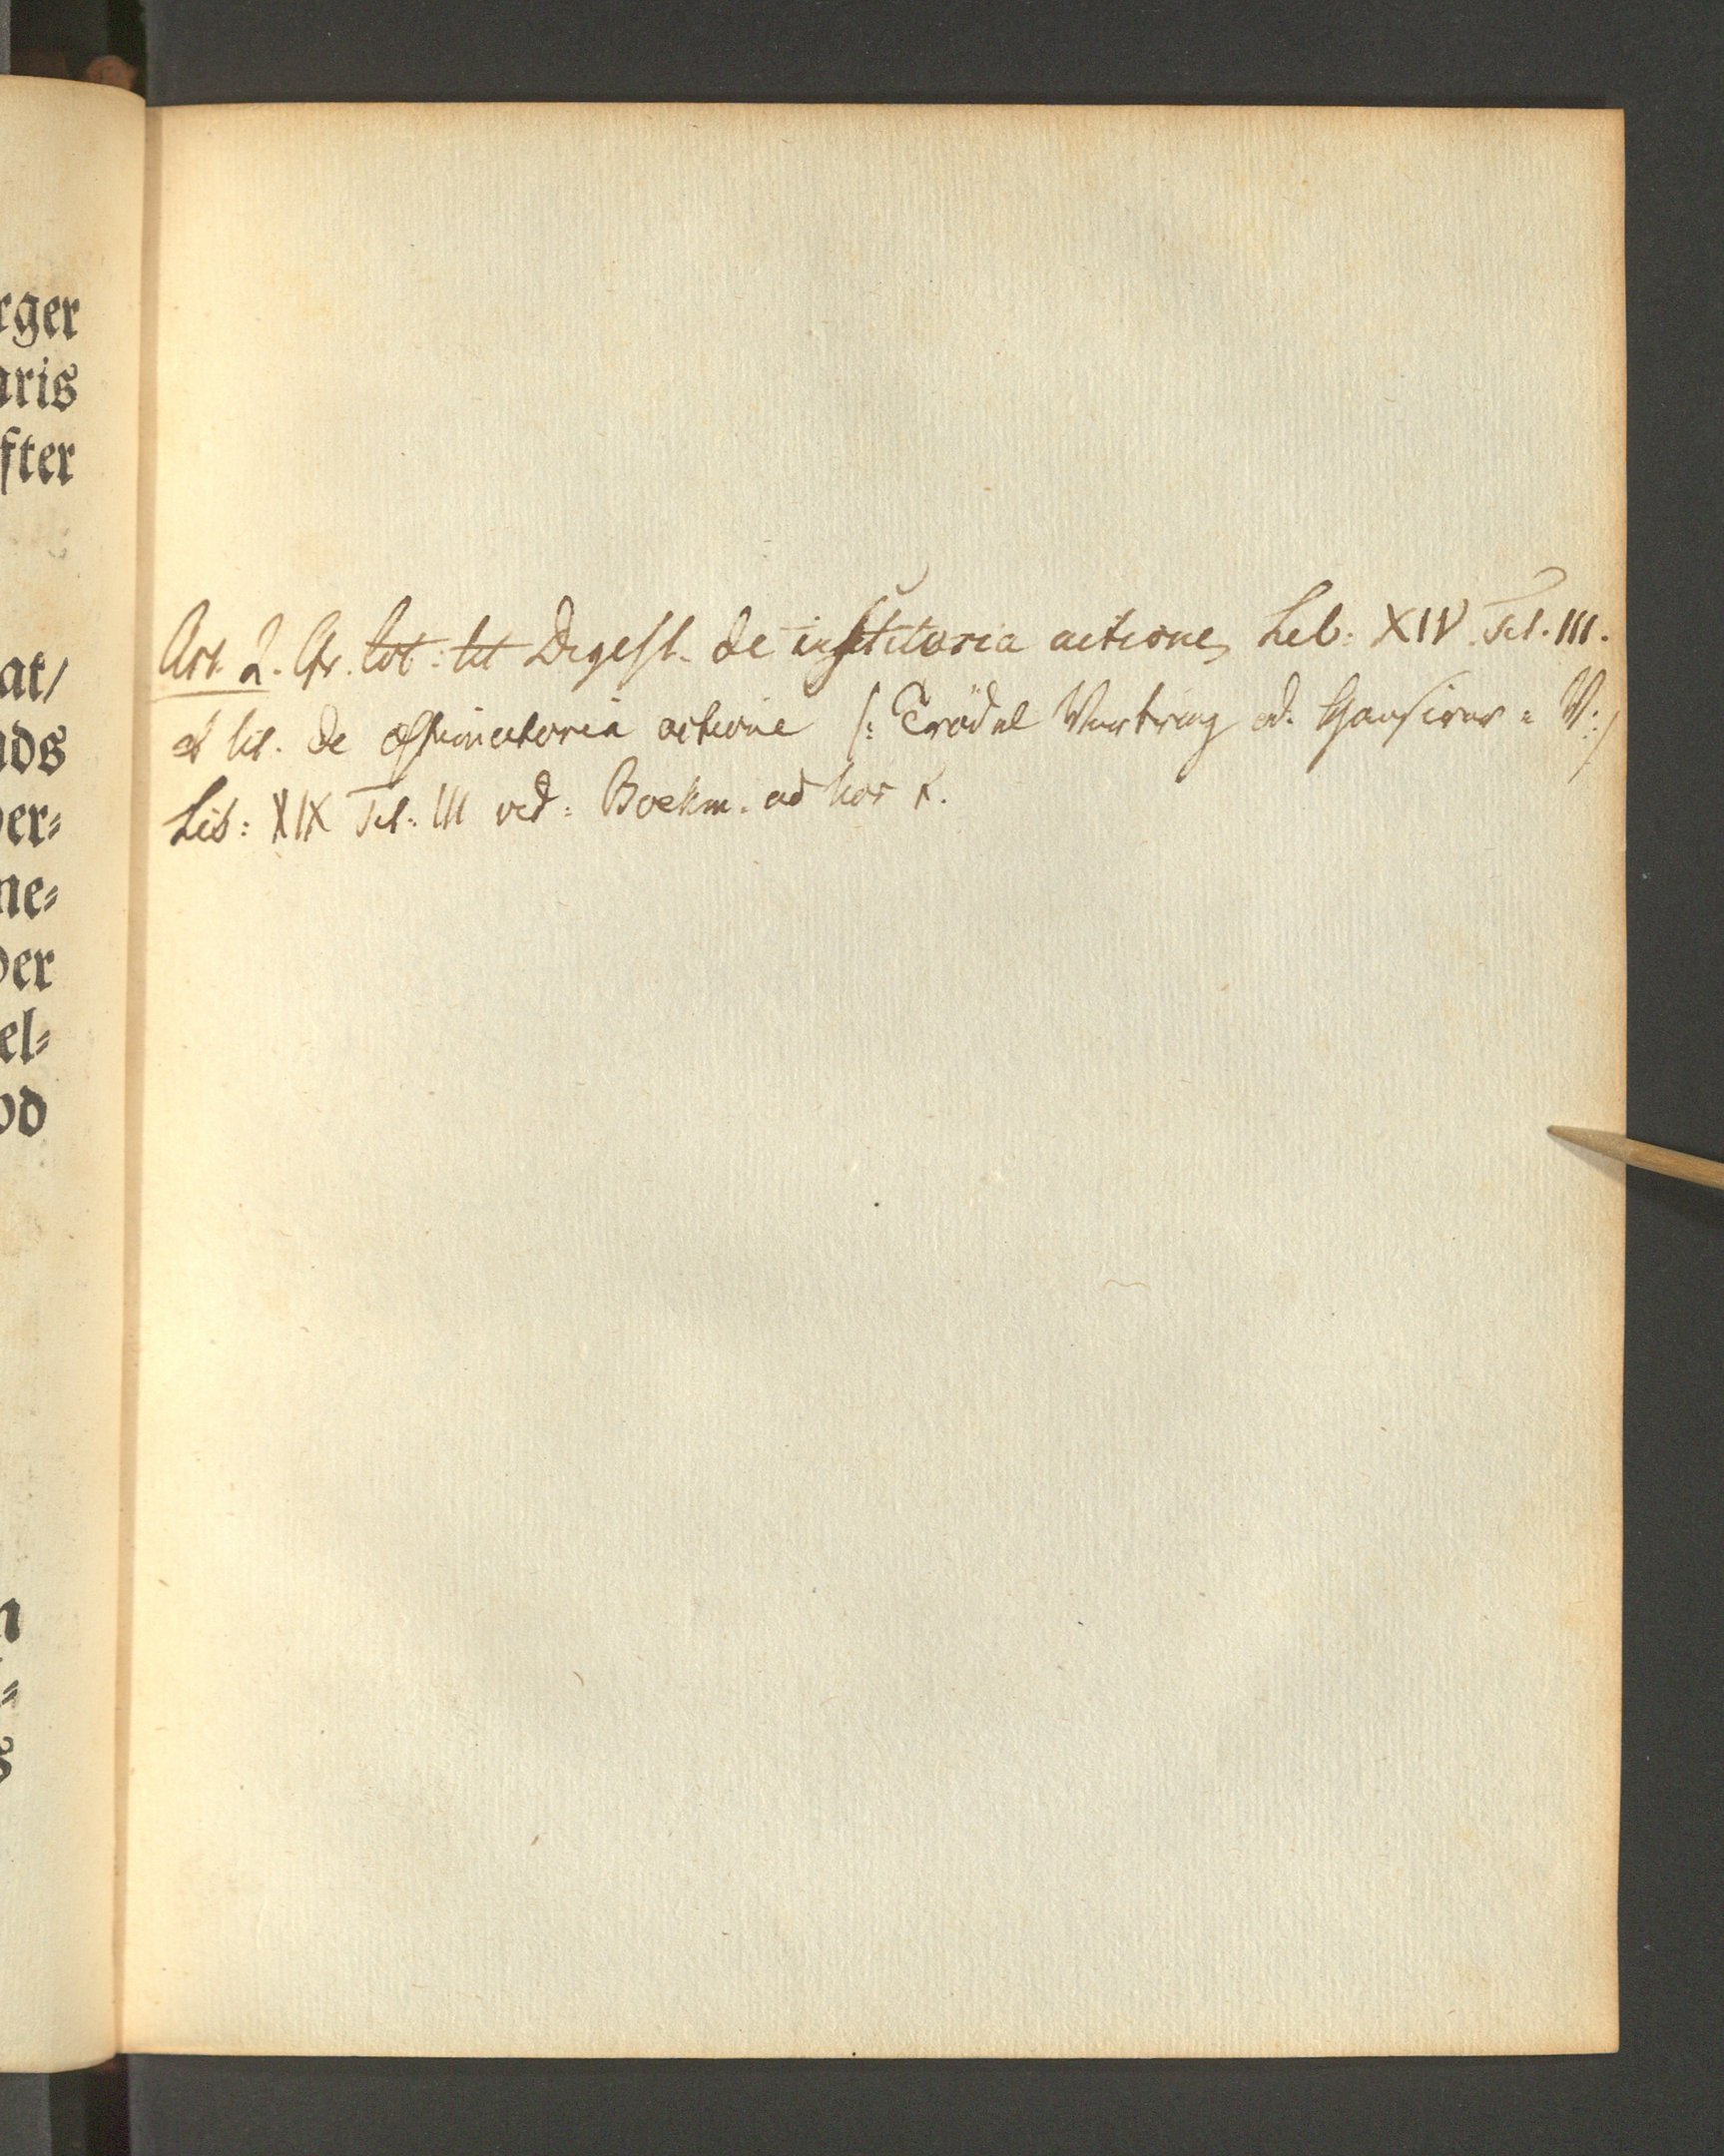 rger
aris
fter
at/
nds
er⸗
ne⸗
der
el⸗
od
n
Art. 2. Cfr. tot: tit Digest. de institoria actione, Lib: XIV. Tit. III.
et tit. de æstimatoria actione /: Trödel Vertrag od. Hausirer = V:/
Lib: XIX Tit: III vid: Boehm. ad hos t.